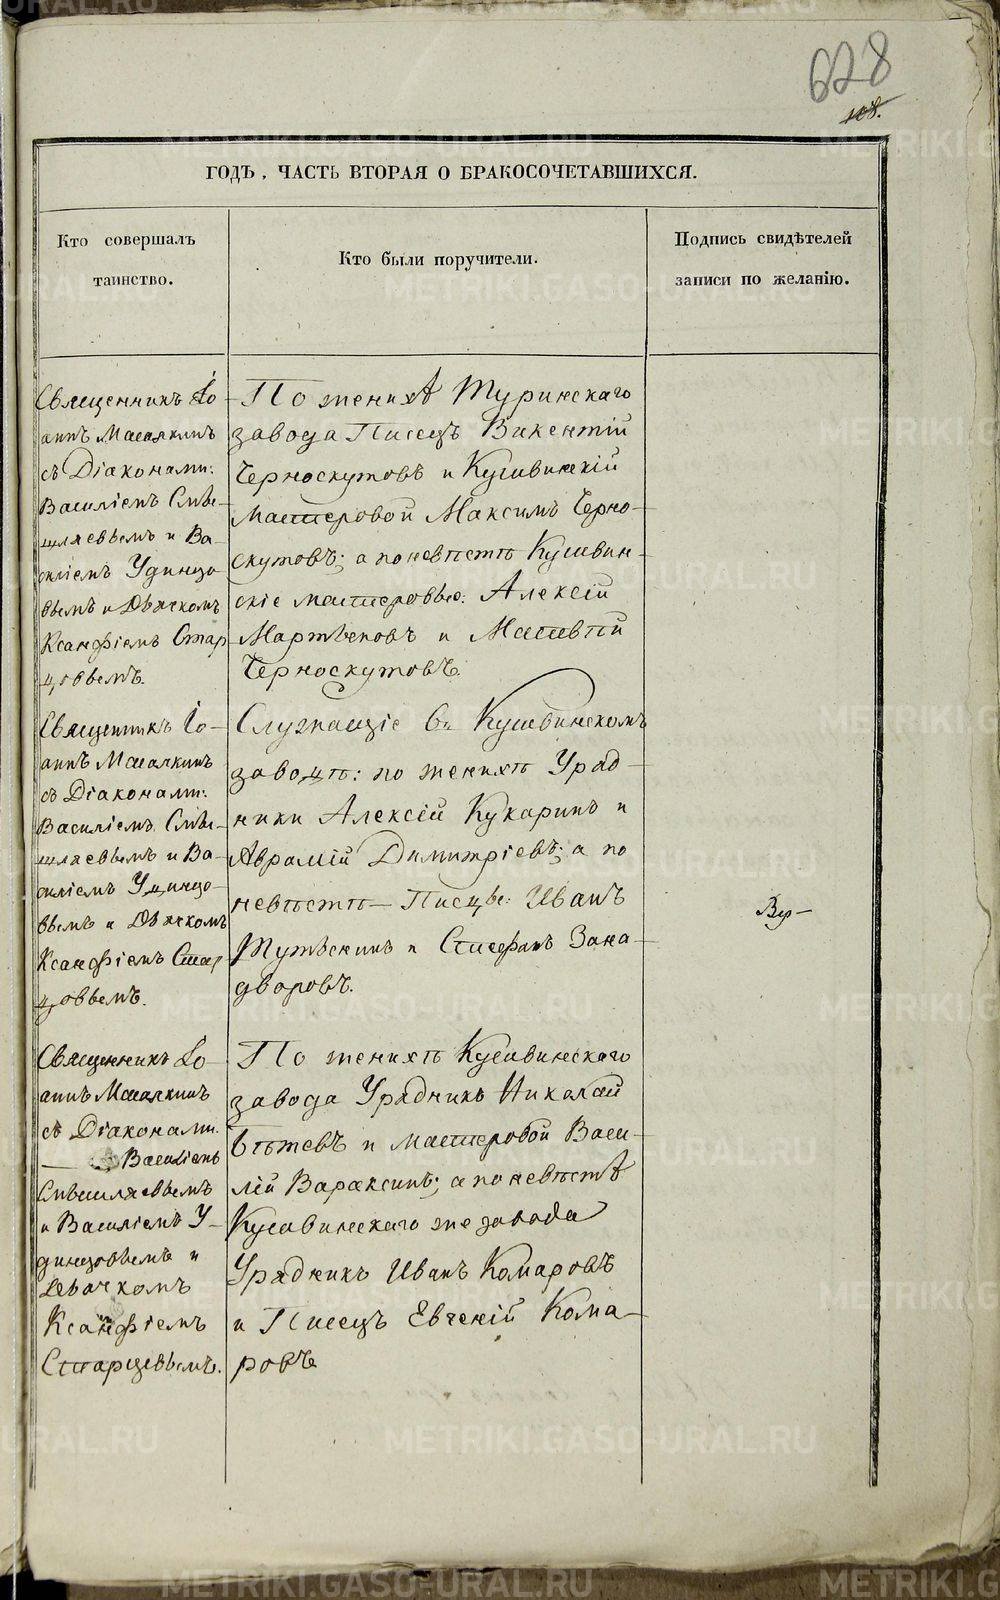 628
108.
ГОДЪ, ЧАСТЬ ВТОРАЯ О БРАКОСОЧЕТАВШИХСЯ.
Кто совершалъ
таинство.
Кто были поручители.
Подпись свидѣтелей
записи по желанію.
Священникъ Іо-
аннъ Масалкинъ
съ Діаконами:
Василіемъ Смы-
шляевымъ и Ва-
силіемъ Удинцо-
вымъ и Дьячкомъ
Ксанфіемъ Стар
цовымъ.
По женихѣ Туринскаго
завода Писецъ Викентій
Черноскутовъ и Кушвинскій
Мастеровой Максимъ Черно-
скутовъ; а по невѣстѣ Кушвин-
скіе мастеровые: Алексій
Мартѣновъ и Матвѣй
Черноскутовъ.
Священникъ Іо-
аннъ Масалкинъ
съ Діаконами:
Василіемъ Смы-
шляевымъ и Ва-
силіемъ Удинцо-
вымъ и Дьячкомъ
Ксанфіемъ Стар
цовымъ.
Служащіе въ Кушвинскомъ
заводѣ: по женихѣ Уряд-
ники Алексій Кукаринъ и
Аврамій Димитріевъ; а по
невѣстѣ – Писцы: Иванъ
и Стефанъ Зана-
дворовъ.
Ву–
Священникъ Іо-
аннъ Масалкинъ
съ Діаконами:
Василіемъ
Смышляевымъ
и Василіемъ У-
динцовымъ и
Дьячкомъ
Ксанфіемъ
Старцевымъ.
По женихѣ Кушвинскаго
завода Урядникъ Николай
и мастеровой Васи-
лій Вараксинъ; а по невѣстѣ
Кушвинскаго же завода
Урядникъ Иванъ Комаровъ
и Писецъ Евгеній Кома-
ровъ
METRIKI.GASO-URAL.RU